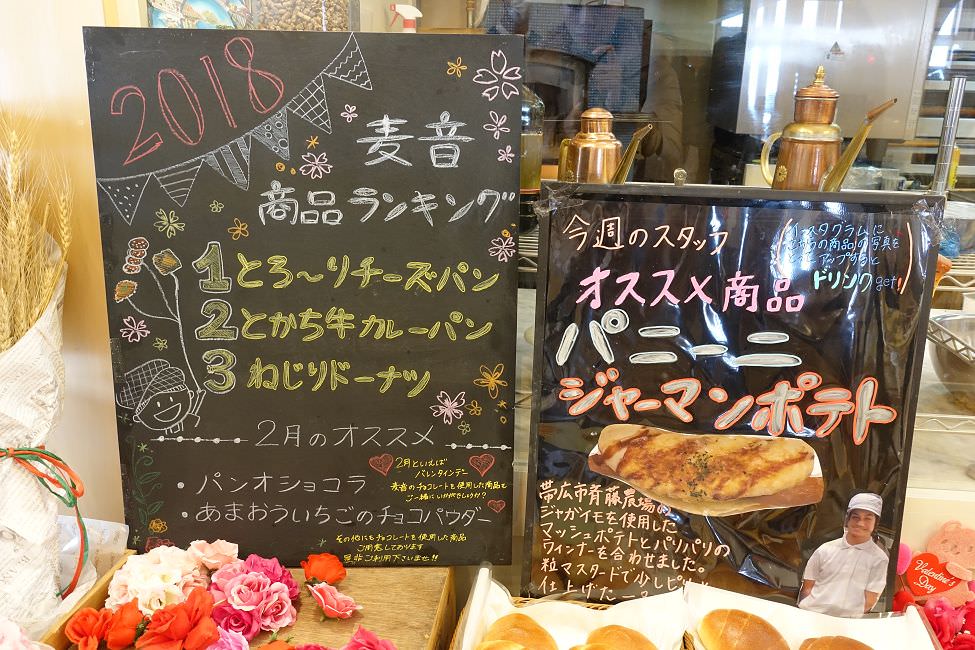 2018
麦音
商品ランキング
1 とろ〜りチーズパン
2 とかち牛カレーパン
3 ねじりドーナツ
2月のオススメ
・パンオショコラ
・あまおういちごのチョコパウダー
2月といえば
バレンタインデー
麦音のチョコレートを使用した商品を
ご一緒にいかがでしょうか?
その他にもチョコレートを使用した商品
ご用意しております
是非ご利用下さいませ!!
今週のスタッフ
オススメ商品
インスタグラムに
こちらの商品の写真を
アップすると
ドリンクget!
パニーニ
ジャーマンポテト
帯広市斉藤農場の
ジャガイモを使用した
マッシュポテトとパリパリの
ウィンナーを合わせました。
粒マスタードで少しピ
仕上げた
Valentine's
Day